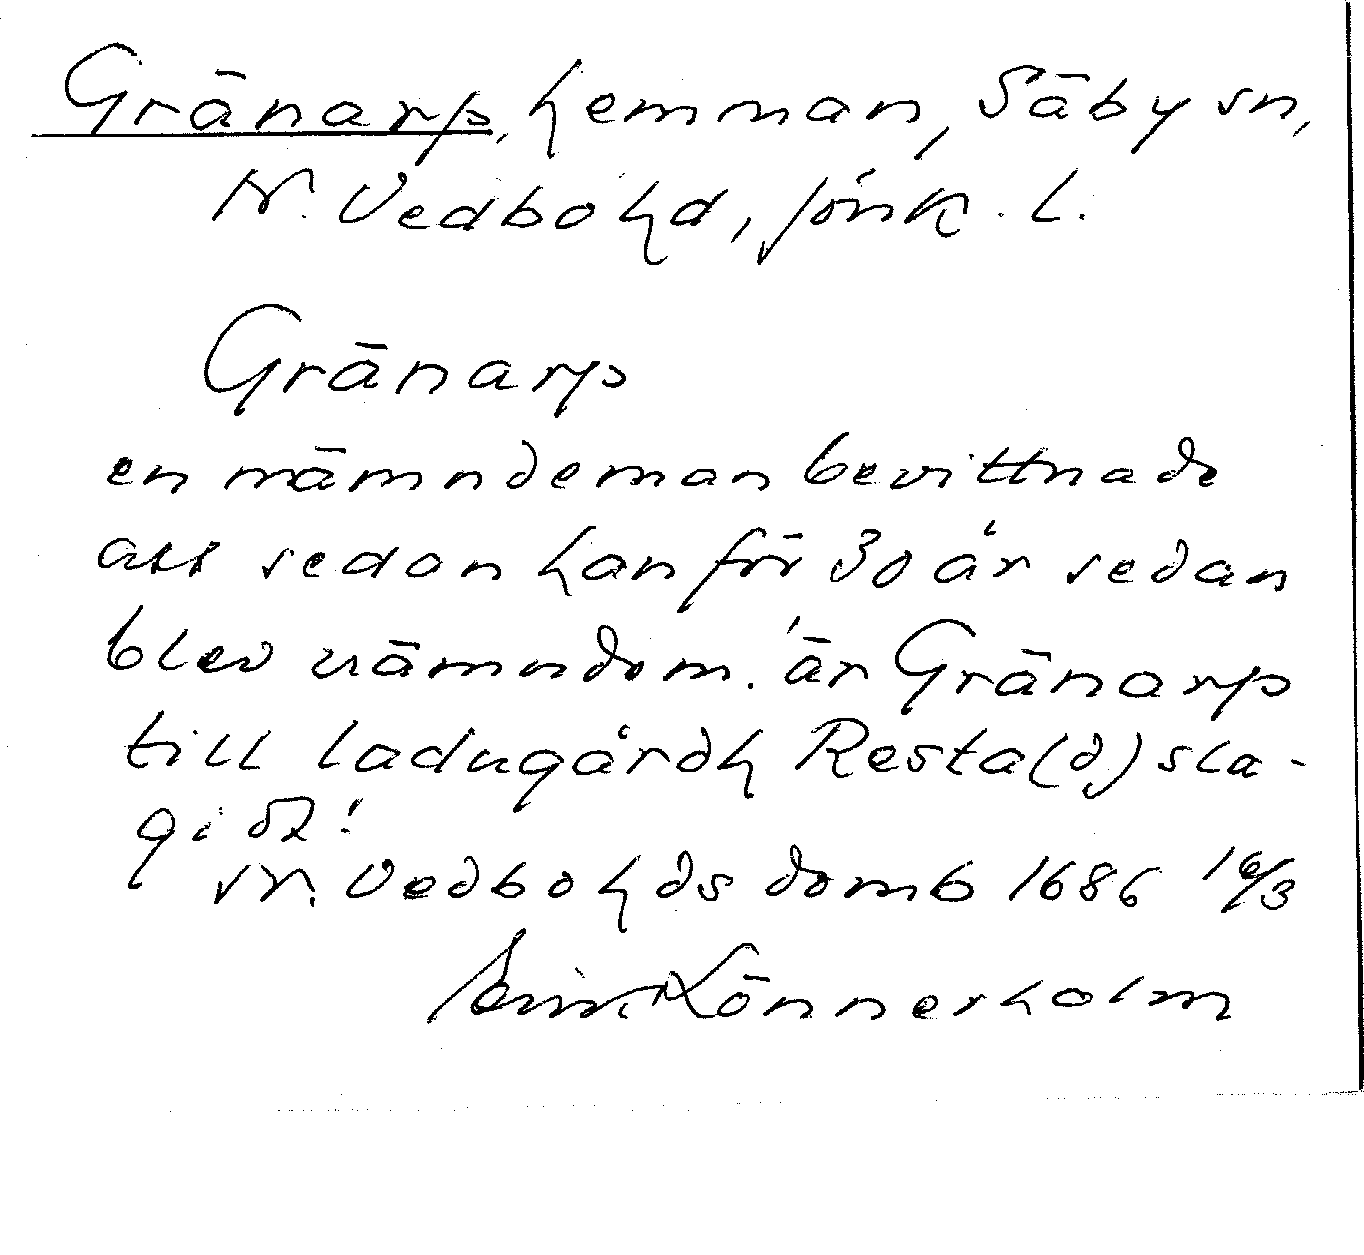 Gränarp, hemman, Säby sn,
N. Vedbohd, Jönk. l.
Gränarp
en nämndeman bevittnade
att sedan han för 30 år sedan
blev nämndem. är Gränarp
till ladugårdh Resta(d) sla-
gidt!
N. Vedbohds domb 1686 16/3
Lönnerholm